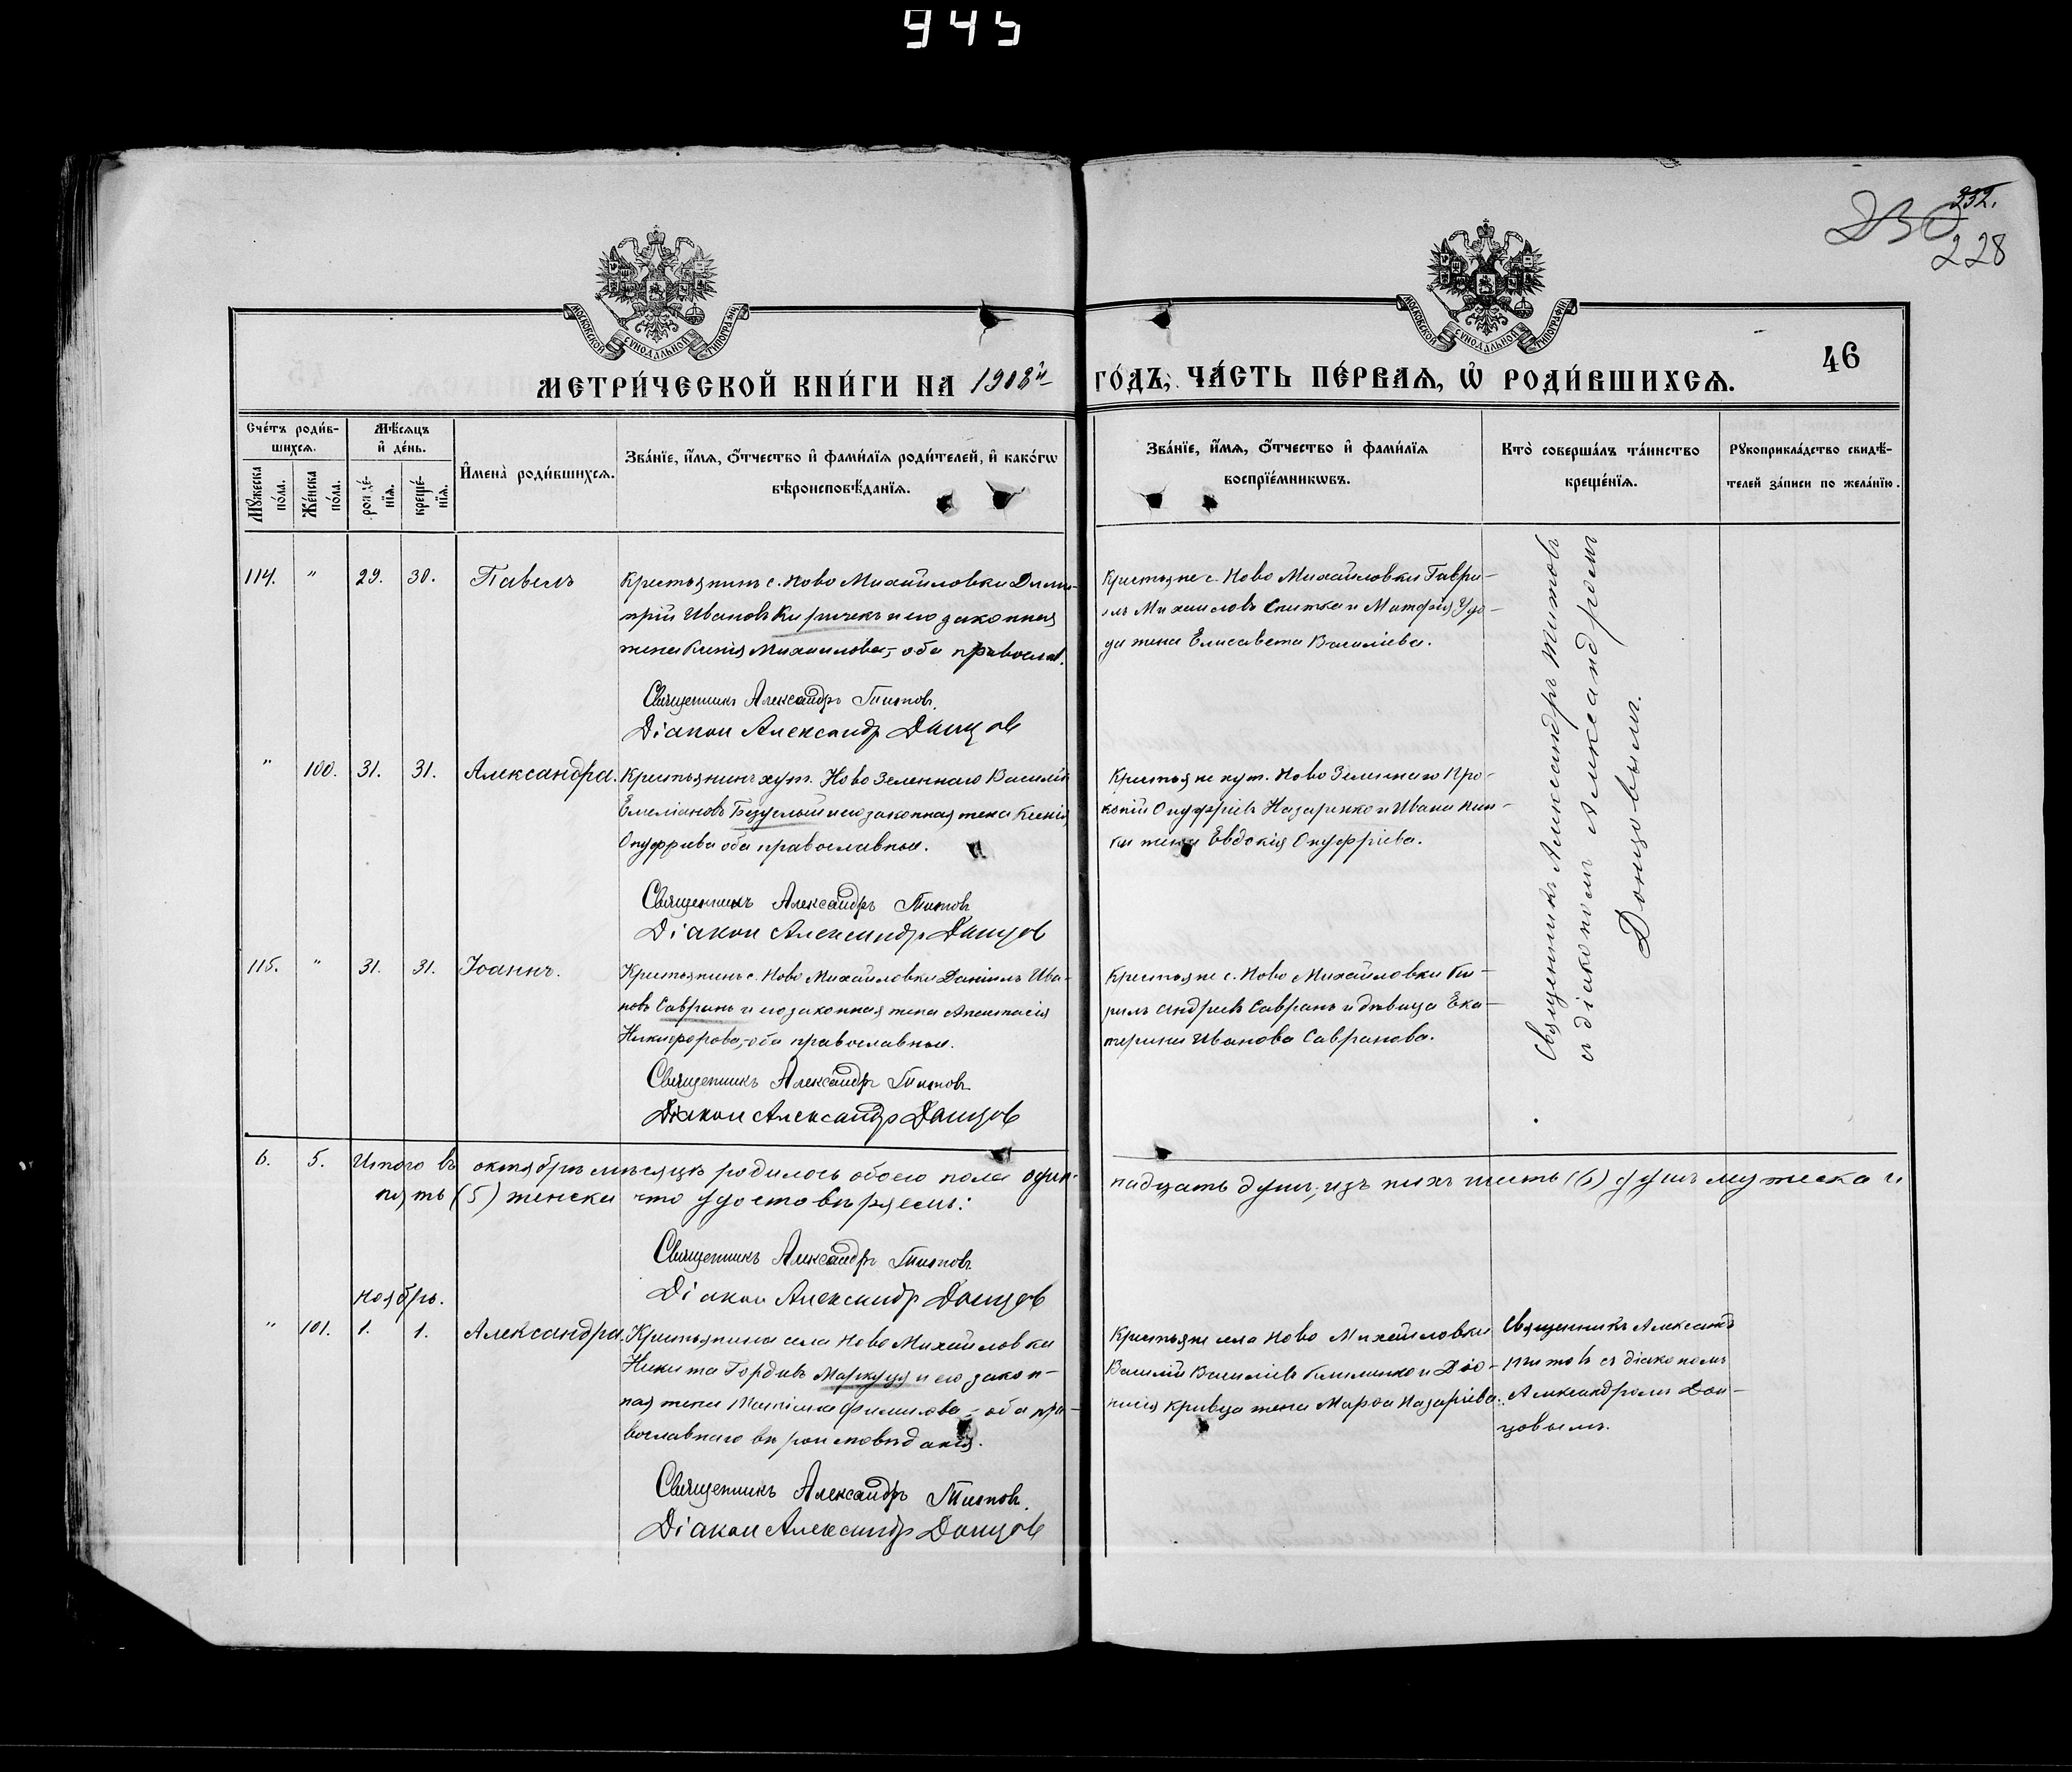 945
332.
230
228
МОСКОВСКОЙ СѴНОДАЛЬНОЙ ТИПОГРАФІИ
МОСКОВСКОЙ СѴНОДАЛЬНОЙ ТИПОГРАФІИ
46
МЕТРИ́ЧЕСКОЙ КНИ́ГИ НА 1908й
ГО́ДЪ, ЧА́СТЬ ПЕ́РВАѦ, Ѡ҆ РОДИ́ВШИХСѦ.
Счéтъ роди́в-
шихсѧ.
Мꙋ́жеска по́ла.
Же́нска по́ла.
Мѣ́сѧцъ
и҆ де́нь.
рожде́-
нїѧ.
креще́-
нїѧ.
И҆мена̀ роди́вшихсѧ.
Зва́нїе, и҆́мѧ, ѻ҆́тчество и҆ фами́лїѧ роди́телей, и҆ како́гѡ
вѣроисповѣ́данїѧ.
Зва́нїе, и҆́мѧ, ѻ҆́тчество и҆ фами́лїѧ
воспрїе́мникѡвъ.
Кто̀ соверша́лъ та́инство
креще́нїѧ.
Рꙋкоприкла́дство свидѣ́-
телей за́писи по жела́нїю.
114. " 29. 30. Павелъ
Крестьянинъ с. Ново Михайловки Дими-
трій Ивановъ Киричекъ и его законная
жена Ксенія Михаилова,- оба православ.
Священникъ Александръ Титовъ.
Діакон Александр Донцов
Крестьяне с. Ново Михайловки Гаври-
илъ Михаиловъ Спитка и Матфія Удо-
да жена Елисавета Василіева.
" 100. 31. 31. Александра.
Крестьянинъ хут. Ново Зеленнаго Василій
Емеліановъ Безуглый и его законная жена Ксенія
Онуфріева оба православные.
Священникъ Александръ Титовъ
Діакон Александр Донцов
Крестьяне хут. Ново Зеленнаго Про-
копій Онуфріевъ Назаренко и Ивана
жена Евдокія Онуфріева.
115. " 31. 31. Іоаннъ.
Крестьянинъ с. Ново Михайловки Даніилъ Ива-
новъ Савранъ и его законная жена Анастасія
Никифорова,-оба православные.
Священникъ Александръ Титовъ
Діакон Александр Донцов
Крестьяне с. Ново Михайловки Ки-
рилъ Андреевъ Савранъ и дѣвица Ека-
терина Иванова Савранова.
Священникъ Александръ Титовъ
съ діакономъ Александромъ
Донцовымъ.
6. 5. Итого въ октябрѣ мѣсяцѣ родилось обоего пола один-
надцать душъ, изъ нихъ шесть (6) душъ мужеска и
пять (5) женска что удостовѣряемъ:
Священникъ Александръ Титовъ
Діакон Александр Донцов
Ноябрь.
" 101. 1. 1. Александра.
Крестьянинъ села Ново Михайловки
Никита Гордіевъ Маркуця и его закон-
ная жена Татіана Филипова - оба пра-
вославнаго вѣроисповѣданія.
Священникъ Александръ Титовъ.
Діакон Александр Донцов
Крестьяне села Ново Михайловки
Василій Василіевъ Клименко и Діо-
нисія Кривца жена Марѳа Назаріева.
Священникъ Александръ
Титовъ съ діакономъ
Александромъ Дон-
цовымъ.